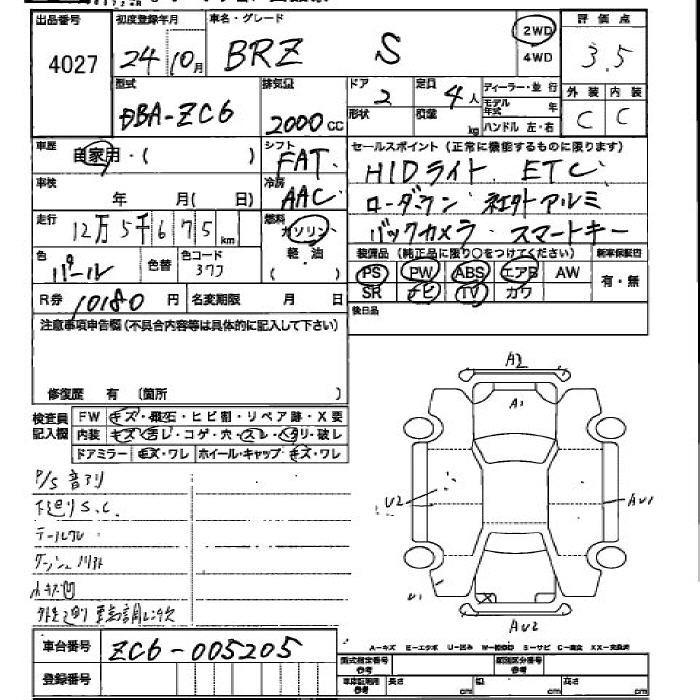 出品番号 初度登録年月 車名・グレード 評価点
4027 24 10月 BRZ S 2WD 4WD 3.5
型式 排気量 ドア 定員 ディーラー・並行 外装 内装
DBA-ZC6 2000CC 2 4人 モデル年式 年 C C
形状 積量 kg ハンドル 左・右
車歴 自家用・( ) シフト FAT セールスポイント(正常に機能するものに限ります)
車検 年 月( 日) 冷房 AAC HIDライト ETC
走行 12万5千675km 燃料 ガソリン・軽・油 ローダウン 社外アルミ
バックカメラ・スマートキー
色 パール 色替 色コード 37J 装備品(純正品に限り○をつけてください) 新車保証書
PS PW ABS エアB AW 有・無
R券 10180円 名変期限 月 日 SR ナビ TV カワ
後日品
注意事項申告欄(不具合内容等は具体的に記入して下さい)
修復歴 有 (箇所 )
検査員記入欄 FW キズ・飛石・ヒビ割・リペア跡・X要
内装 キズ・汚レ・コゲ・穴・スレ・ヘタリ・破レ
ドアミラー キズ・ワレ ホイール・キャップ キズ・ワレ
P/S 音アリ
下廻りS.C.
テールワレ
小キズ凹
A2
A1
U2
AU1
U1
AU2
車台番号 ZC6-005205
登録番号
A-キズ E-エクボ U-凹み W-補修跡 S-サビ C-腐食 XX-交換済
型式指定番号 参考 類別区分番号 参考
車庫証明用 参考 長さ cm 幅 cm 高さ cm